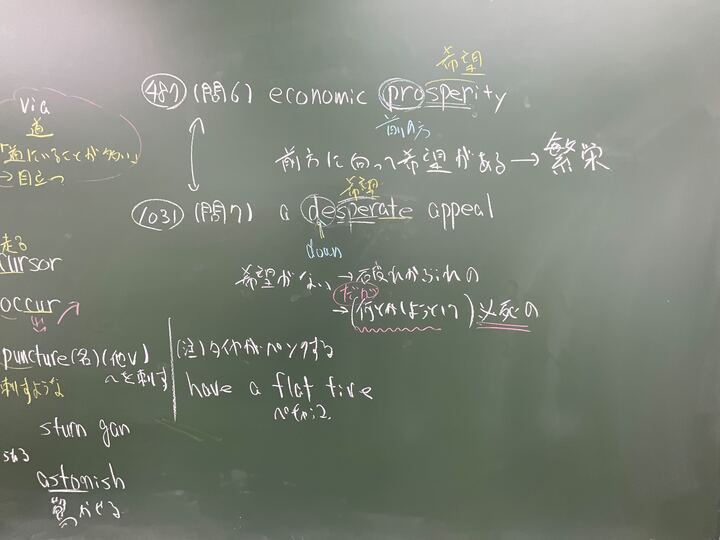 via
道
「道にいることが多い」
→目立つ
走る
cursor
occur
出
puncture(名)(他V)
〜を刺す
刺すような
stun gan
astonish
驚かせる
希望
487 (問6) economic prosperity
前の方
前方に向って希望がある→繁栄
希望
1031 (問7) a desperate appeal
down
希望がない→破れかぶれの
だから
→(何とかしようとして)必死の
(注)タイヤがパンクする
have a flat tire